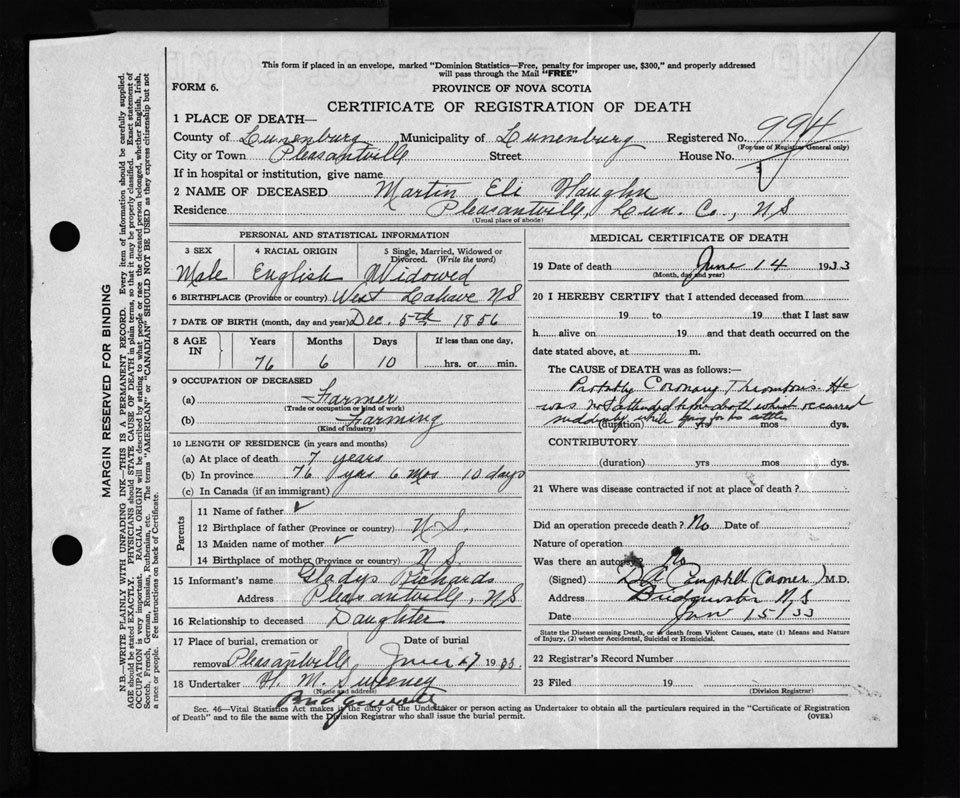 This form if placed in an envelope, marked "Dominion Statistics—Free, penalty for improper use, $300," and properly addressed
will pass through the Mail "FREE"
FORM 6.
PROVINCE OF NOVA SCOTIA
CERTIFICATE OF REGISTRATION OF DEATH
1 PLACE OF DEATH—
County of Lunenburg Municipality of Lunenburg Registered No. 994
(For use of Registrar General only)
City or Town Pleasantville Street House No.
If in hospital or institution, give name
2 NAME OF DECEASED Martin Eli Vaughn
Residence Pleasantville, Lun. Co., NS
(Usual place of abode)
PERSONAL AND STATISTICAL INFORMATION
3 SEX 4 RACIAL ORIGIN 5 Single, Married, Widowed or Divorced. (Write the word)
Male English Widowed
6 BIRTHPLACE (Province or country) West Lahave NS
7 DATE OF BIRTH (month, day and year) Dec. 5th 1856
8 AGE IN Years Months Days If less than one day,
76 6 10 hrs. or min.
9 OCCUPATION OF DECEASED
(a) Farmer
(Trade or occupation or kind of work)
(b) Farming
(Kind of Industry)
10 LENGTH OF RESIDENCE (in years and months)
(a) At place of death 7 years
(b) In province 76 yrs 6 mos 10 days
(c) In Canada (if an immigrant)
Parents
11 Name of father
12 Birthplace of father (Province or country) N S.
13 Maiden name of mother
14 Birthplace of mother (Province or country) N S.
15 Informant's name Gladys Richards
Address Pleasantville, NS
16 Relationship to deceased Daughter
17 Place of burial, cremation or removal Date of burial
Pleasantville June 17 1933.
18 Undertaker H. M. Sweeney
(Name and address)
Bridgewater
MEDICAL CERTIFICATE OF DEATH
19 Date of death June 14 1933
(Month, day and year)
20 I HEREBY CERTIFY that I attended deceased from
19 to 19 that I last saw
h alive on 19 and that death occurred on the
date stated above, at m.
The CAUSE of DEATH was as follows:—
Probably Coronary Thrombosis. He
was not attended before death which occurred
suddenly while going for his cattle
(duration) yrs mos dys.
CONTRIBUTORY
(duration) yrs mos dys.
21 Where was disease contracted if not at place of death?
Did an operation precede death? No Date of
Nature of operation
Was there an autopsy? No
(Signed) Campbell (Coroner) M.D.
Address Bridgewater N S
Date June 15/33
State the Disease causing Death, or in death from Violent Causes, state (1) Means and Nature
of Injury, (2) whether Accidental, Suicidal or Homicidal.
22 Registrar's Record Number
23 Filed 19
(Division Registrar)
Sec. 46—Vital Statistics Act makes it the duty of the Undertaker or person acting as Undertaker to obtain all the particulars required in the "Certificate of Registration
of Death" and to file the same with the Division Registrar who shall issue the burial permit. (OVER)
MARGIN RESERVED FOR BINDING
N.B.—WRITE PLAINLY WITH UNFADING INK—THIS IS A PERMANENT RECORD. Every item of information should be carefully supplied.
AGE should be stated EXACTLY. PHYSICIANS should STATE CAUSE OF DEATH in plain terms, so that it may be properly classified. Exact statement of
OCCUPATION is very important. RACIAL ORIGIN will be described by stating to what people or race the deceased person belonged, whether English, Irish,
Scotch, French, German, Russian, Ruthenian, etc. The terms "AMERICAN" or "CANADIAN" SHOULD NOT BE USED as they express citizenship but not
a race or people. See instructions on back of Certificate.